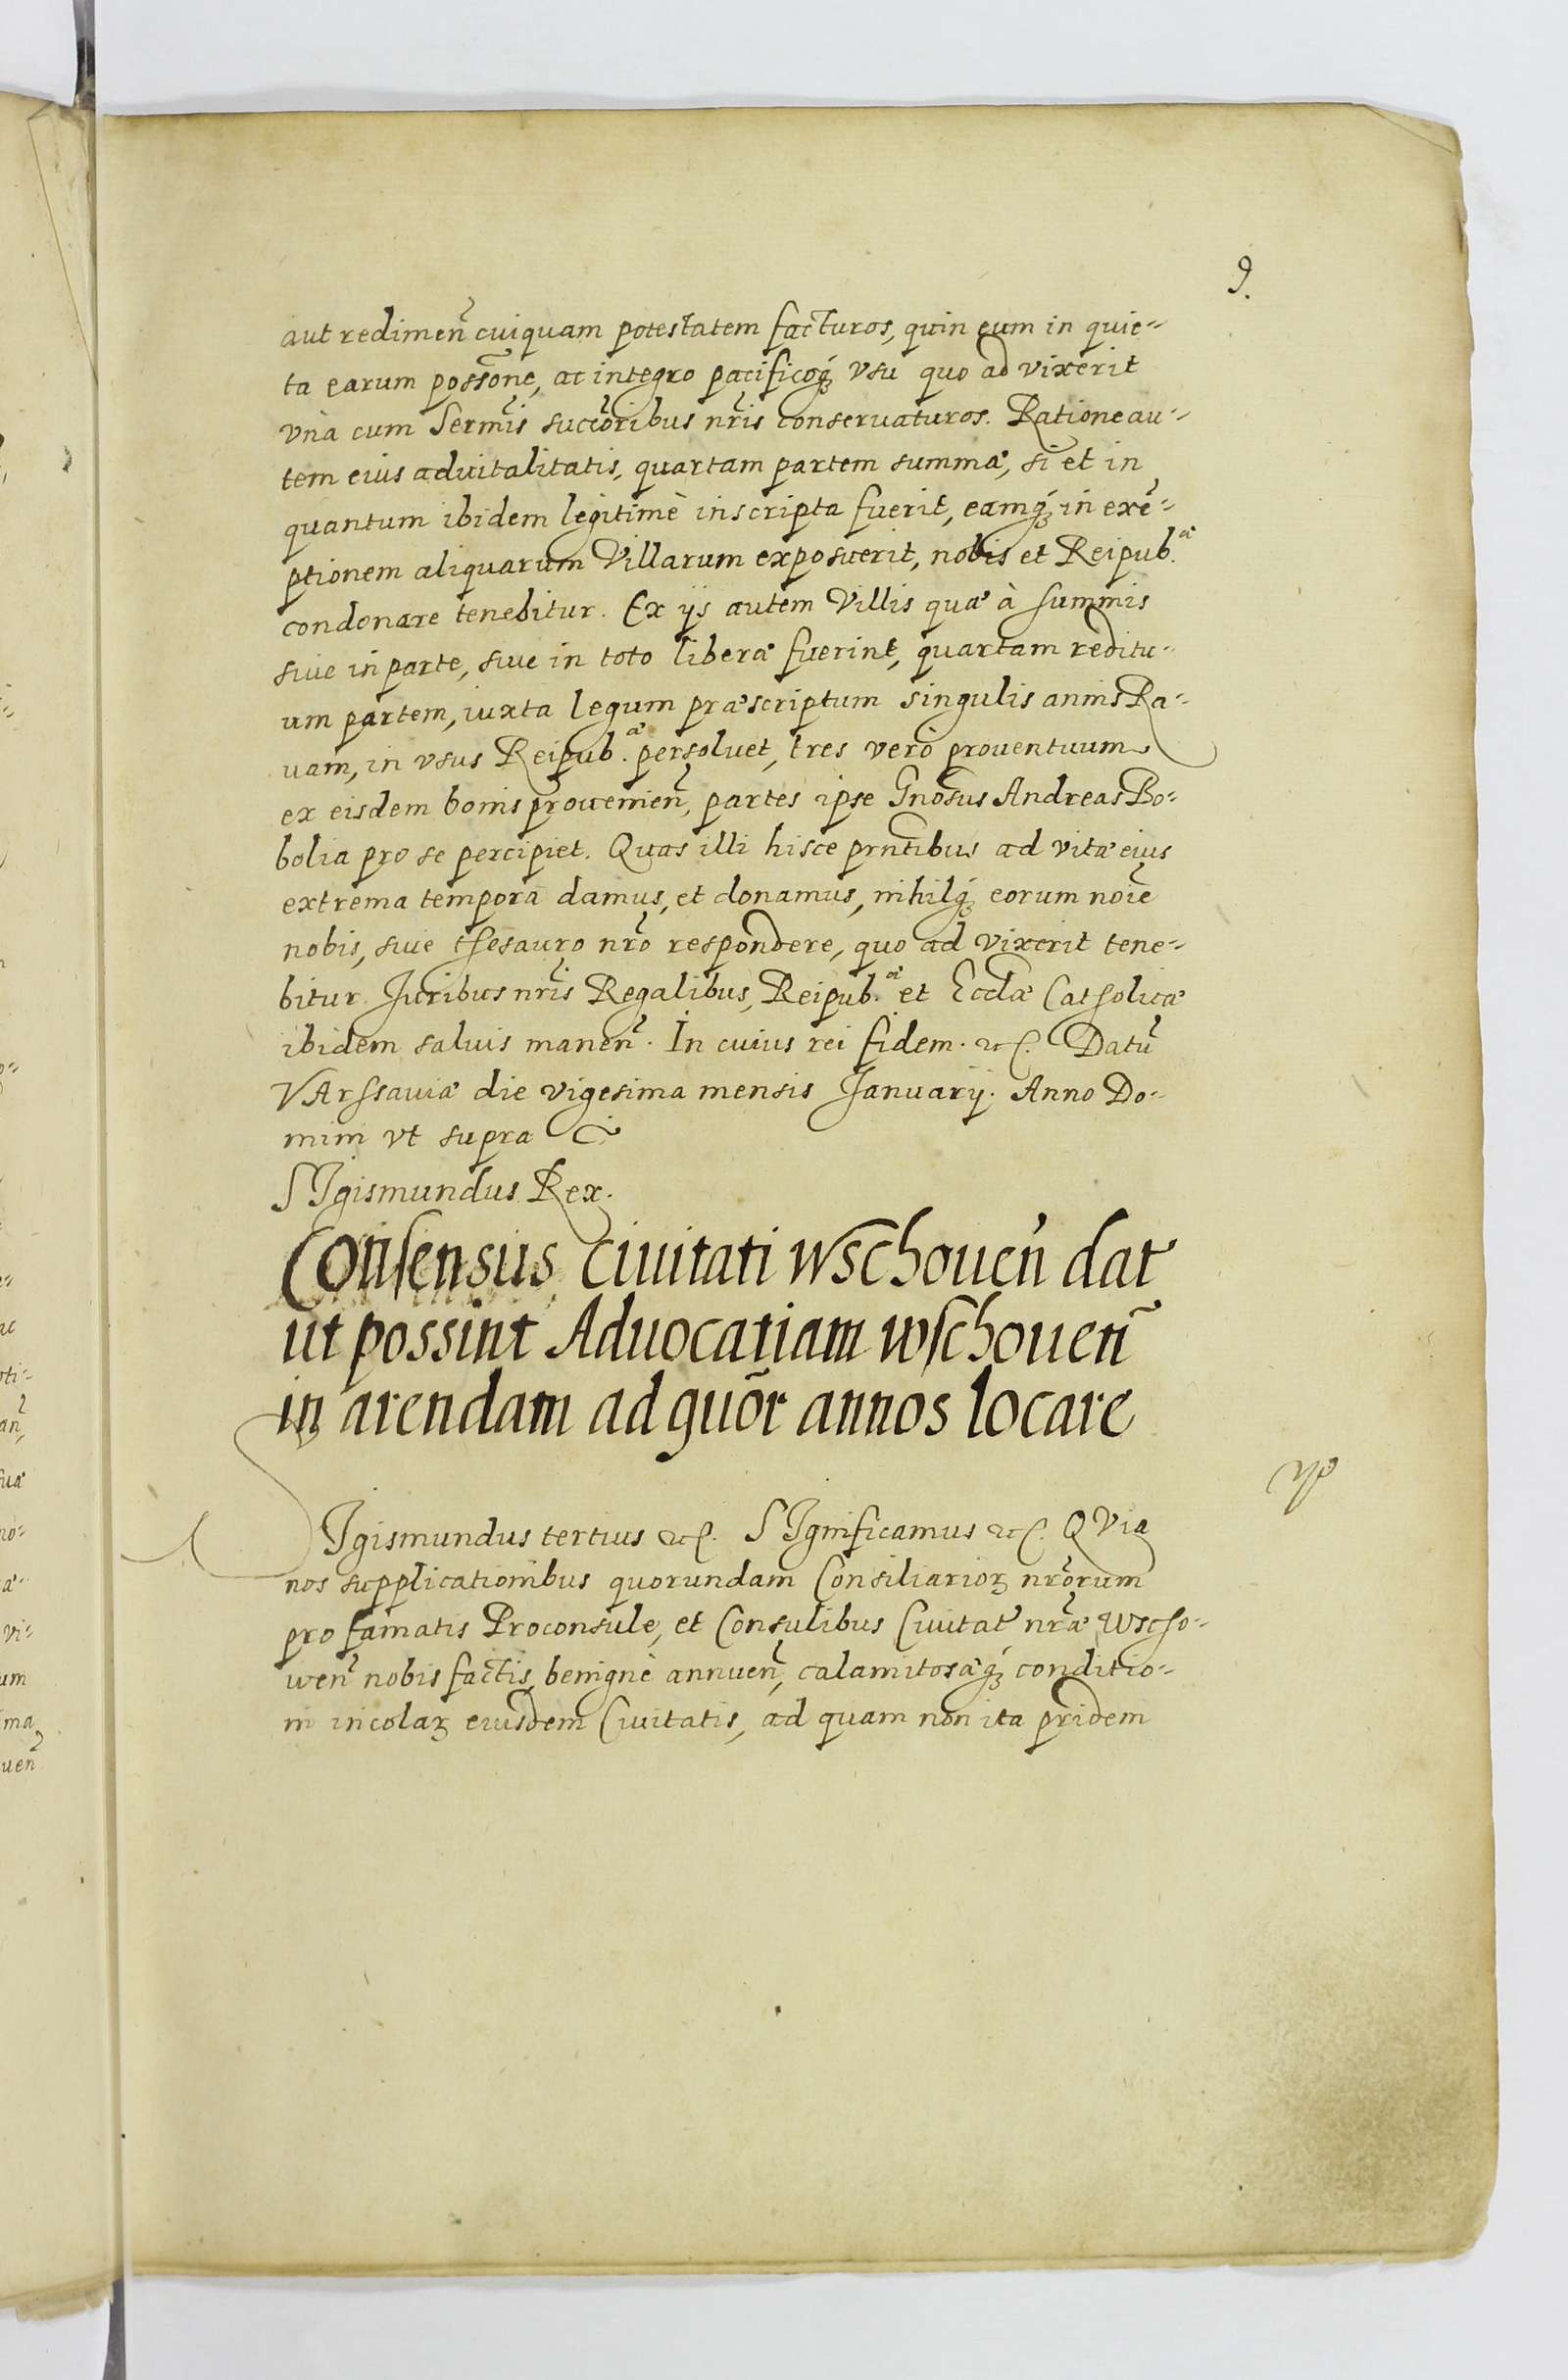 9.
aut redimeñ cuiquam potestatem facturos, quin eum in quie-
ta earum possõne, ac integro pacificoq; vsu quo ad vixerit
vnà cum Sermĩs succõribus nr̃is conseruaturos. Ratione au-
tem eius aduitalitatis, quartam partem summæ, si et in
quantum ibidem legitimè inscripta fuerit, eamq; in exẽ-
ptionem aliquarum Villarum exposuerit, nobis et Reipub.æ
condonare tenebitur. Ex ijs autem Villis quæ à summis
siue in parte, siue in toto liberæ fuerint, quartam reditu-
um partem, iuxta legum præscriptum singulis annis Ra-
uam, in vsus Reipub.æ persoluet, tres verò prouentuum
ex eisdem bonis prouenieñ, partes ipse Gnõsus Andreas Bo-
bolia pro se percipiet. Quas illi hisce prñtibus ad vitæ eius
extrema tempora damus, et donamus, nihilq; eorum noĩe
nobis, siue thesauro nrõ respondere, quo ad vixerit tene-
bitur. Juribus nr̃is Regalibus, Reipub.æ et Eccl̃æ Catholicæ
ibidem saluis maneñ. In cuius rei fidem. etc. Datũ
VArssauiæ die vigesima mensis Januarij. Anno Do-
mini vt supra
SIgismundus Rex.
Consensus Ciuitati Wschoueñ dat
ut possint Aduocatiam wschoueñ
in arendam ad quõr annos locare
SIgismundus tertius etc. SIgnificamus etc. QVia
nos supplicationibus quorundam Consiliarioꝝ nr̃orum
pro famatis Proconsule, et Consulibus Ciuitat̃ nr̃æ Wscho-
weñ nobis factis, benignè annueñ, calamitosæq; conditio-
ni incolaꝝ eiusdem Ciuitatis, ad quam non ita pridem